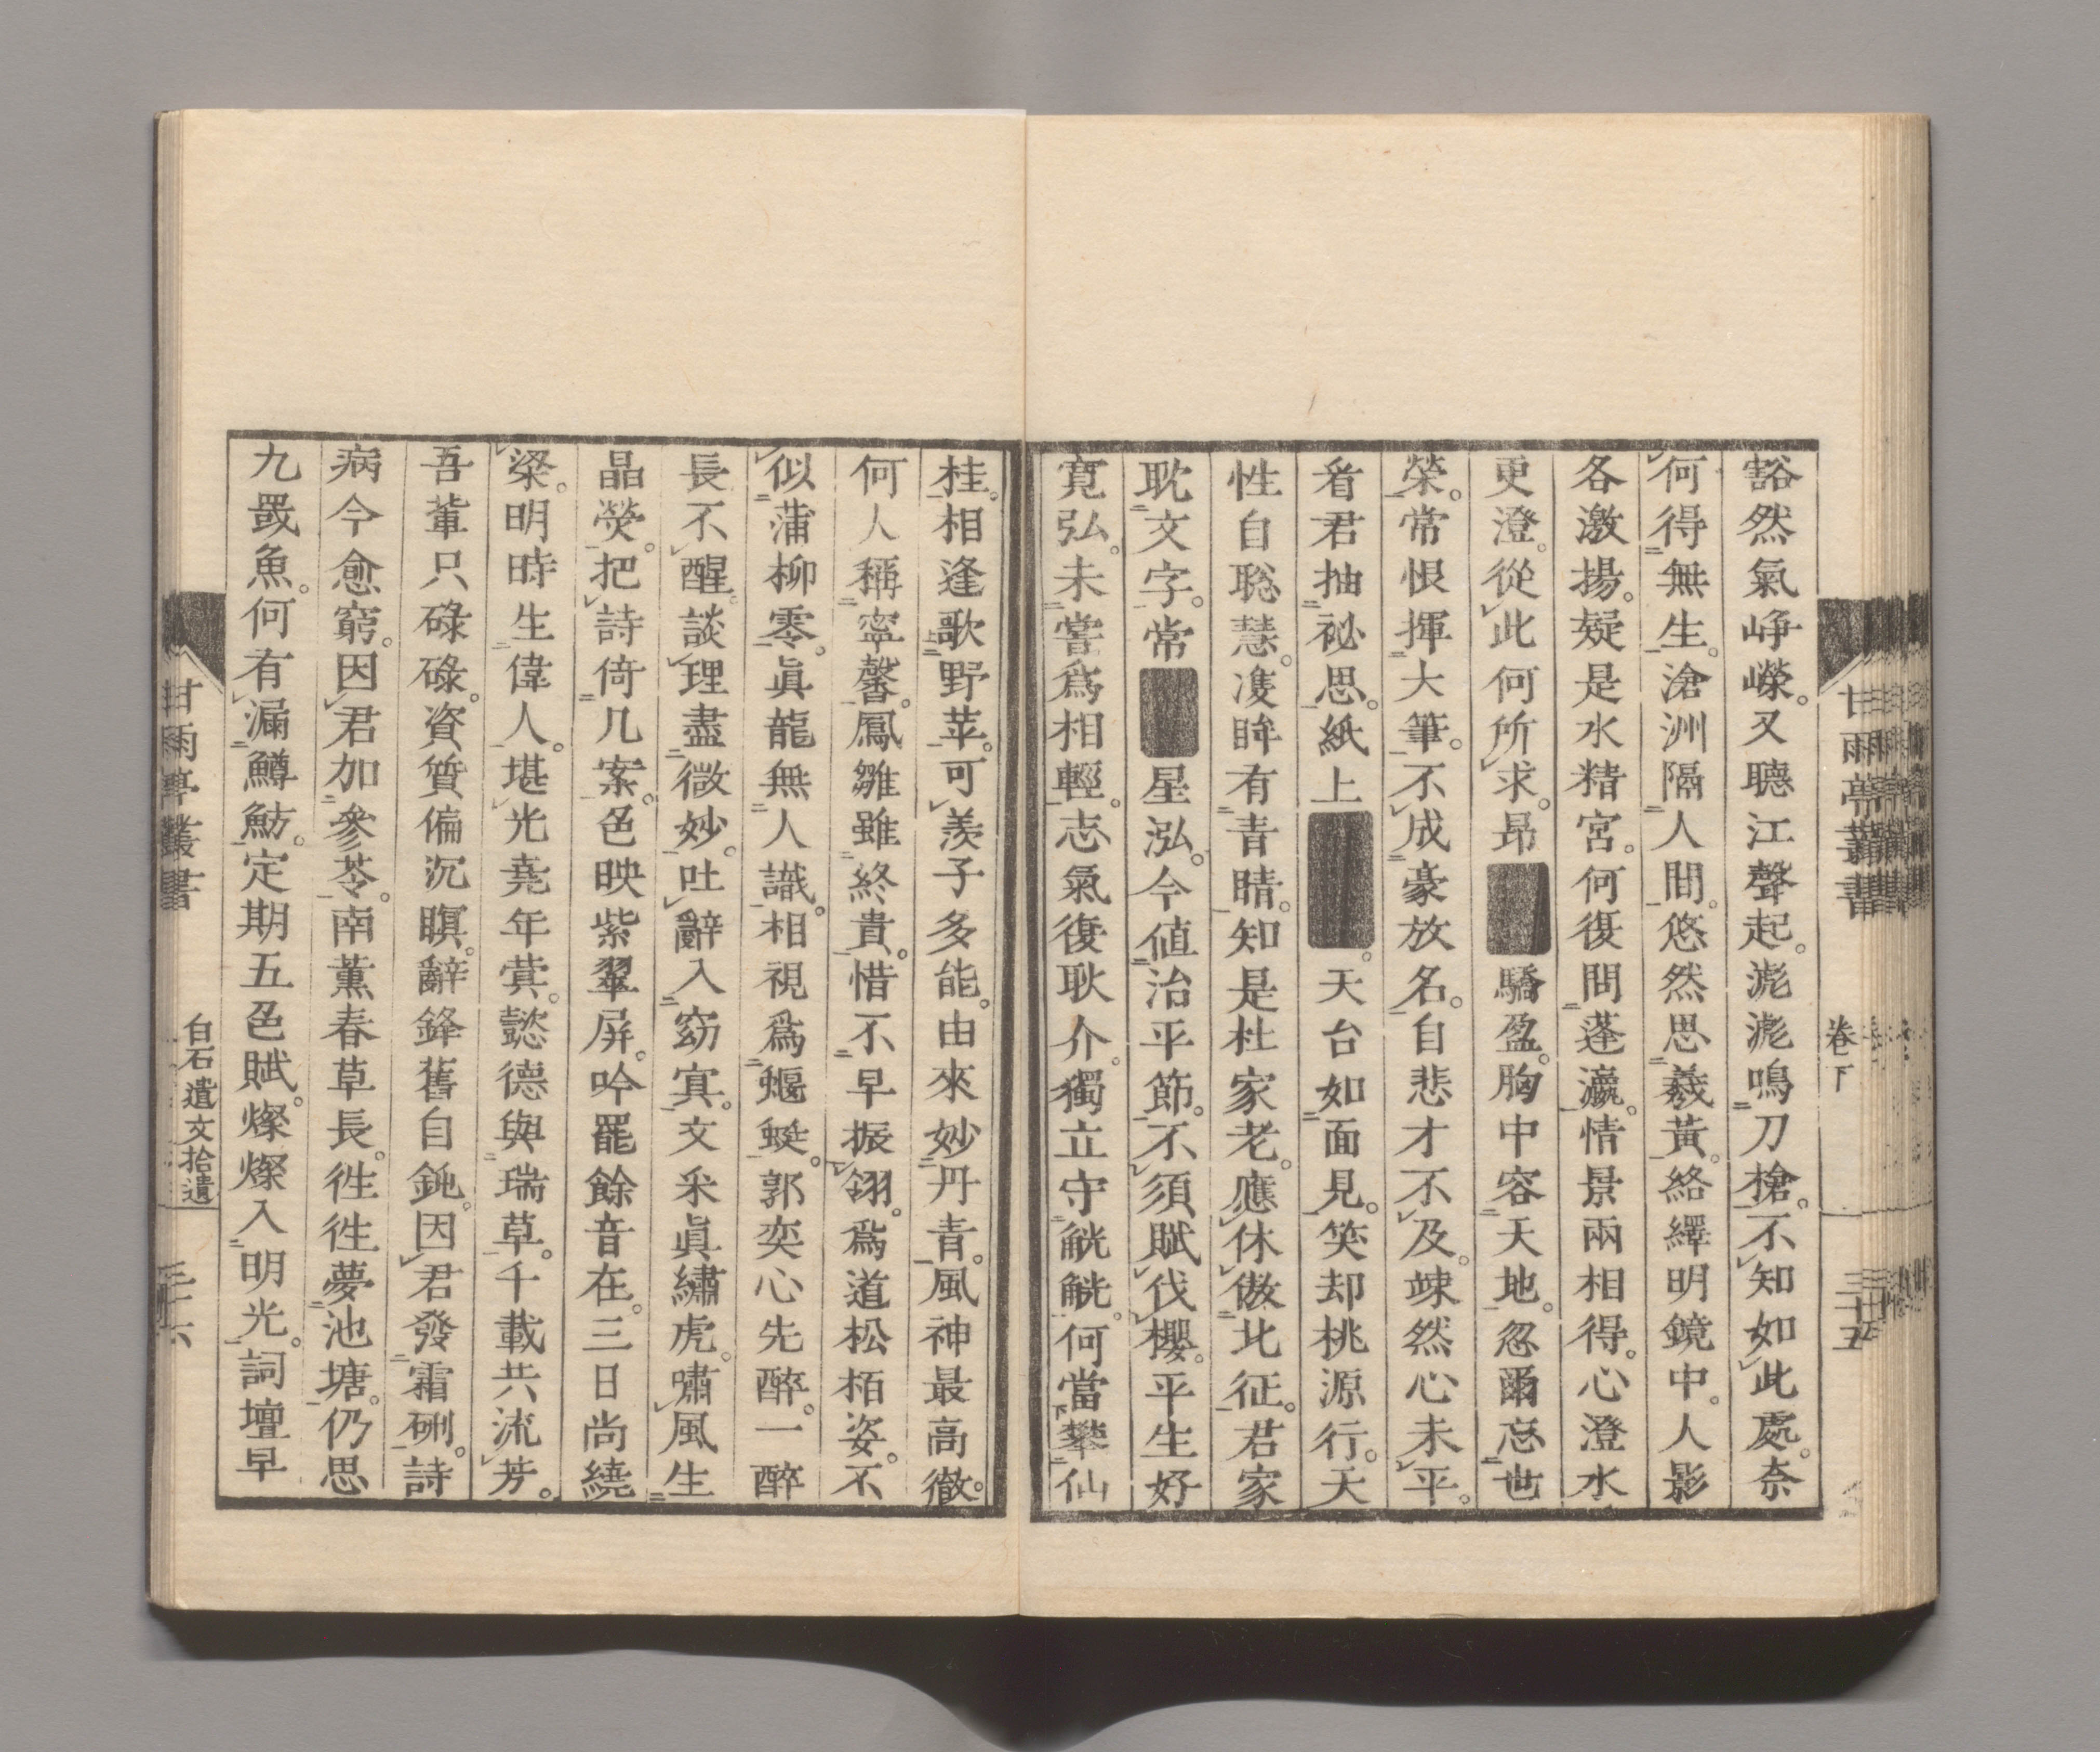 豁然氣崢嶸。又聽江聲起。滮滮鳴刀槍。不知如此處。奈
何得無生。滄洲隔人間。悠然思羲黃。絡繹明鏡中。人影
各激揚。疑是水精宮。何復問蓬瀛。情景兩相得。心澄水
更澄。從此何所求。昂驕盈。胸中容天地。忽爾忘世
榮。常恨揮大筆。不成豪放名。自悲才不及。竦然心未平。
看君抽祕思。紙上。天台如面見。笑却桃源行。天
性自聡慧。隻眸有青睛。知是杜家老。應休倣北征。君家
耽文字。常星泓。今値治平節。不須賦伐櫻。平生好
寛弘。未嘗爲相輕。志氣復耿介。獨立守觥觥。何當攀仙
桂。相逢歌野苹。可羨子多能。由來妙丹靑。風神最高徹。
何人稱寧馨。鳳雛雖終貴。惜不早振翎。爲道松栢姿。不
似蒲柳零。眞龍無人識。相視爲蝘蜓。郭奕心先醉。一醉
長不醒。談理盡微妙。吐辭入窈寘。文采眞繡虎。嘯風生
晶熒。把詩倚几案。色映紫翠屏。吟罷餘音在。三日尚繞
梁。明時生偉人。堪光堯年蓂。懿德與瑞草。千載共流芳。
吾輩只碌碌。資質偏沉瞑。辭鋒舊自鈍。因君發霜硎。詩
病今愈窮。因君加參苓。南薫春草長。徃徃夢池塘。仍思
九罭魚。何有漏鱒魴。定期五色賦。燦燦入明光。詞壇早
甘雨亭叢書
卷下
三十五
甘雨亭叢書
白石遺文拾遺
三十六